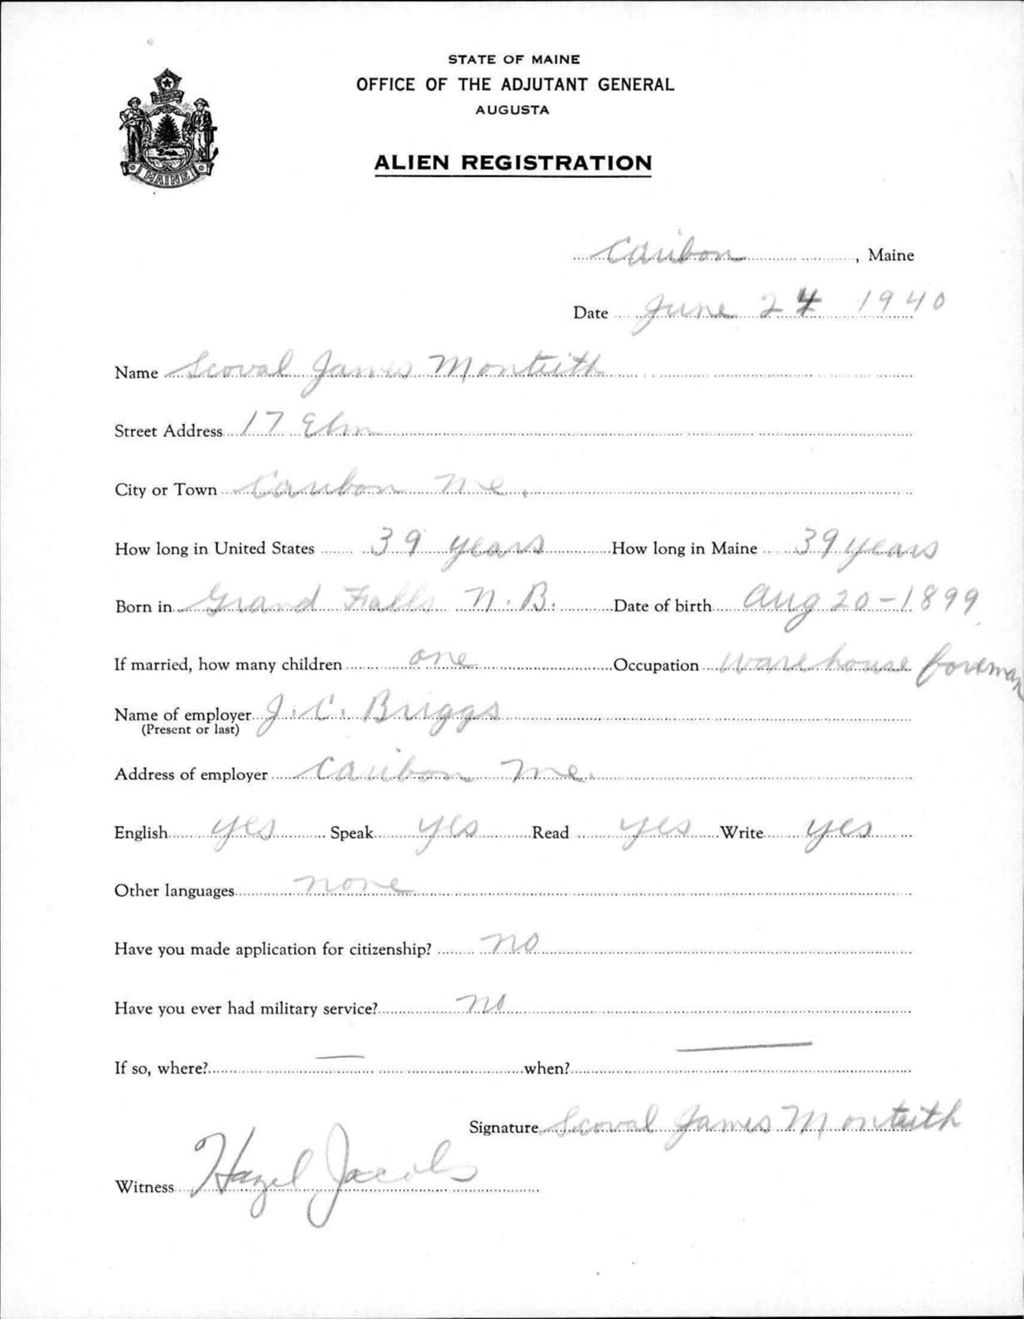 STATE OF MAINE
OFFICE OF THE ADJUTANT GENERAL
AUGUSTA
ALIEN REGISTRATION
MAINE
Caribou, Maine
Date June 24 1940
Name Scoval James Monteith
Street Address 17 Elm
City or Town Caribou Me.
How long in United States 39 years How long in Maine 39 years
Born in Grand Falls N.B. Date of birth Aug 20-1899
If married, how many children one Occupation warehouse foreman
Name of employer J. C. Briggs
(Present or last)
Address of employer Caribou Me.
English yes Speak yes Read yes Write yes
Other languages none
Have you made application for citizenship? no
Have you ever had military service? no
If so, where? — when? —
Signature Scoval James Monteith
Witness Hazel Jacobs